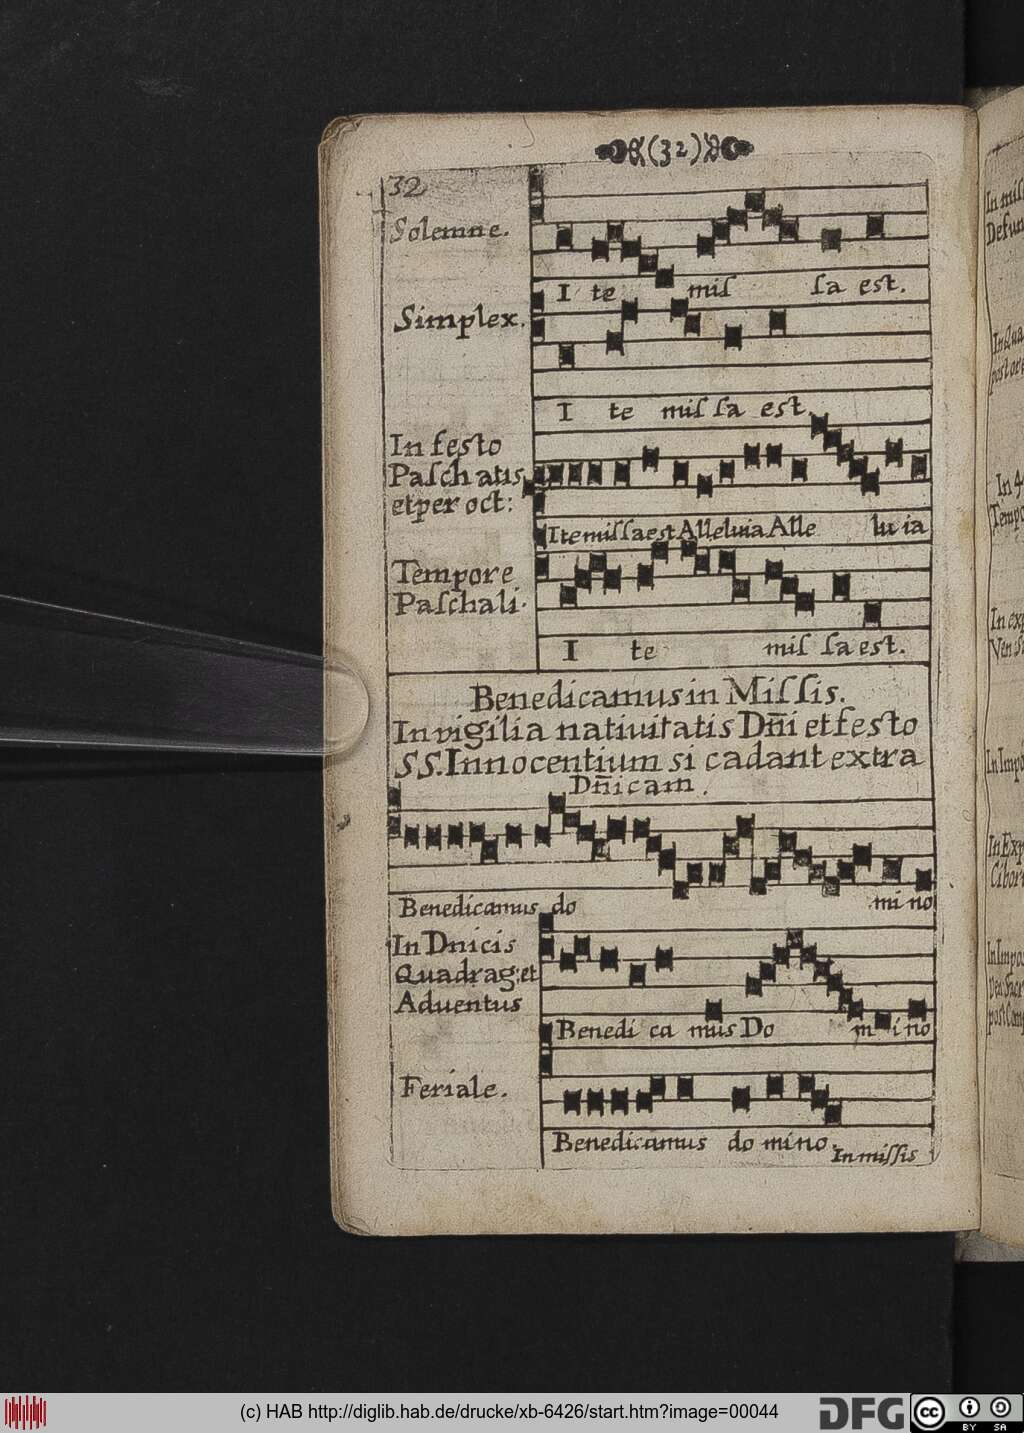 (32)
32
Solemne.
I te miſ ſa est.
Simplex.
I te miſ ſa est.
In festo
Paſchatis
et per oct:
Ite miſſa est Alleluia Alle lu ia
Tempore
Paſchali.
I te miſ ſa est.
Benedicamus in Miſſis.
In vigilia nativitatis Dn̄i et festo
SS. Innocentium si cadant extra
Dn̄icam.
Benedicamus do mi no
In Dnicis
Quadrag: et
Aduentus
Benedi ca mus Do m i no
Feriale.
Benedicamus do mino.
In miſſis
In miſ
Defun
In Qua
post or
In 4
Tempo
In ex
Ven S
In Impo
In Exp
Cibor
In Impos
Ven Sacr
post Con
(c) HAB http://diglib.hab.de/drucke/xb-6426/start.htm?image=00044
DFG
cc
BY SA